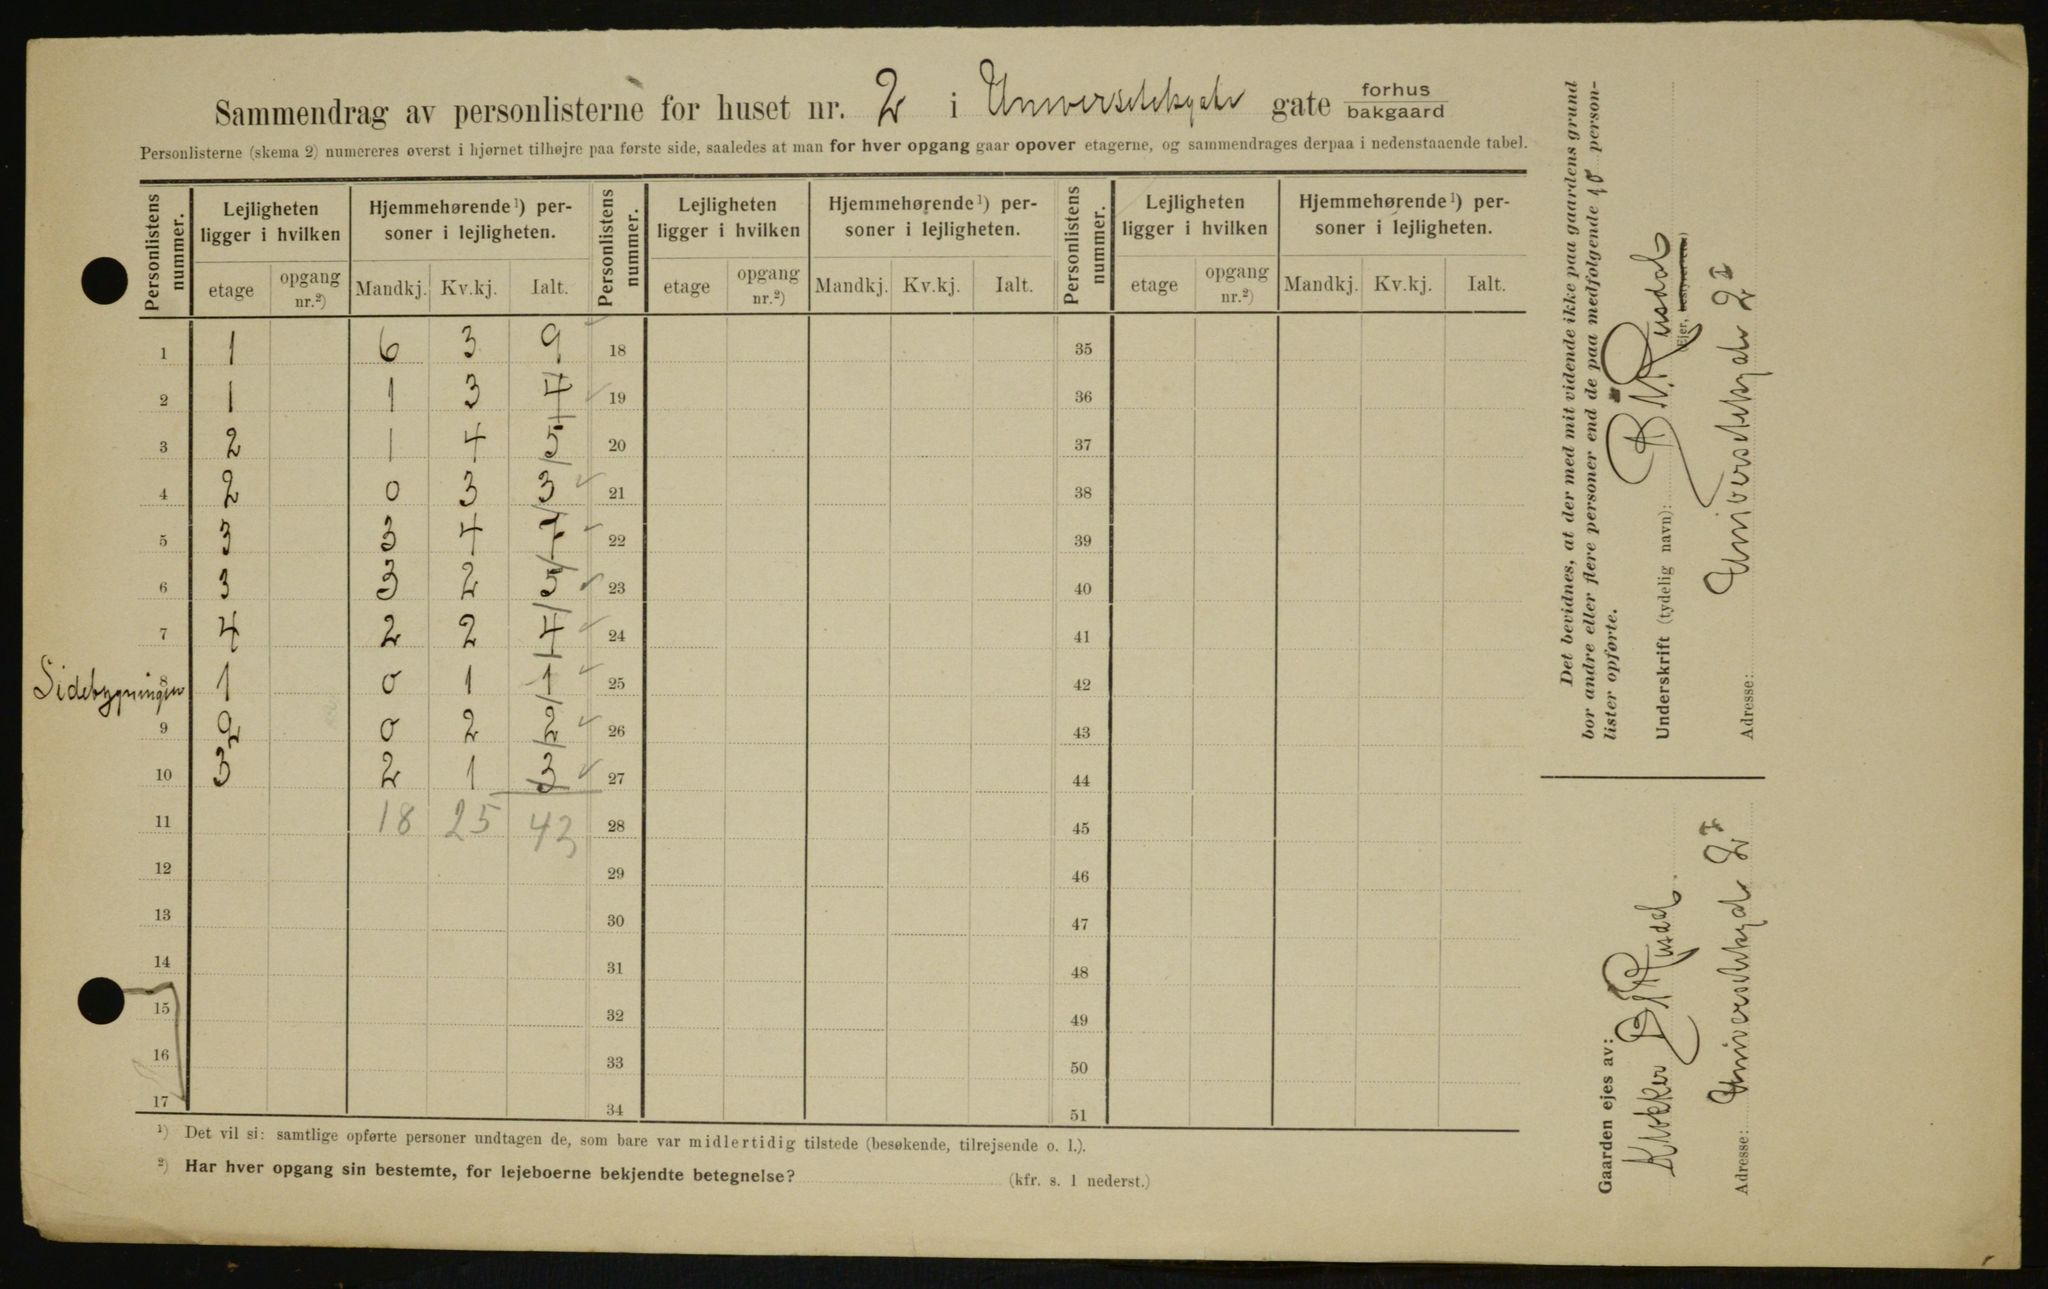 Sammendrag av personlisterne for huset nr. 2 i Universitetsgate gate forhus bakgaard
Personlisterne (skema 2) numereres øverst i hjørnet tilhøjre paa første side, saaledes at man for hver opgang gaar opover etagerne, og sammendrages derpaa i nedenstaaende tabel.
Personlistens nummer. Lejligheten ligger i hvilken Hjemmehørende¹) personer i lejligheten. Personlistens nummer. Lejligheten ligger i hvilken Hjemmehørende¹) personer i lejligheten. Personlistens nummer. Lejligheten ligger i hvilken Hjemmehørende¹) personer i lejligheten.
etage opgang nr.²) Mandkj. Kv.kj. Ialt. etage opgang nr.²) Mandkj. Kv.kj. Ialt. etage opgang nr.²) Mandkj. Kv.kj. Ialt.
1 1 6 3 9 18 35
2 1 1 3 4 19 36
3 2 1 4 5 20 37
4 2 0 3 3 21 38
5 3 3 4 7 22 39
6 3 3 2 5 23 40
7 4 2 2 4 24 41
Sidebygningen 8 1 0 1 1 25 42
9 2 0 2 2 26 43
10 3 2 1 3 27 44
11 18 25 43 28 45
12 29 46
13 30 47
14 31 48
15 32 49
16 33 50
17 34 51
¹) Det vil si: samtlige opførte personer undtagen de, som bare var midlertidig tilstede (besøkende, tilrejsende o. l.).
²) Har hver opgang sin bestemte, for lejeboerne bekjendte betegnelse? (kfr. s. 1 nederst.)
Det bevidnes, at der med mit vidende ikke paa gaardens grund
bor andre eller flere personer end de paa medfølgende 10 person-
lister opførte.
Underskrift (tydelig navn): Rusdal
(Ejer, bestyrer)
Adresse: Universitetsgate 2 I
Gaarden ejes av:
Klokker Rusdal
Adresse: Universitetsgate 2 I